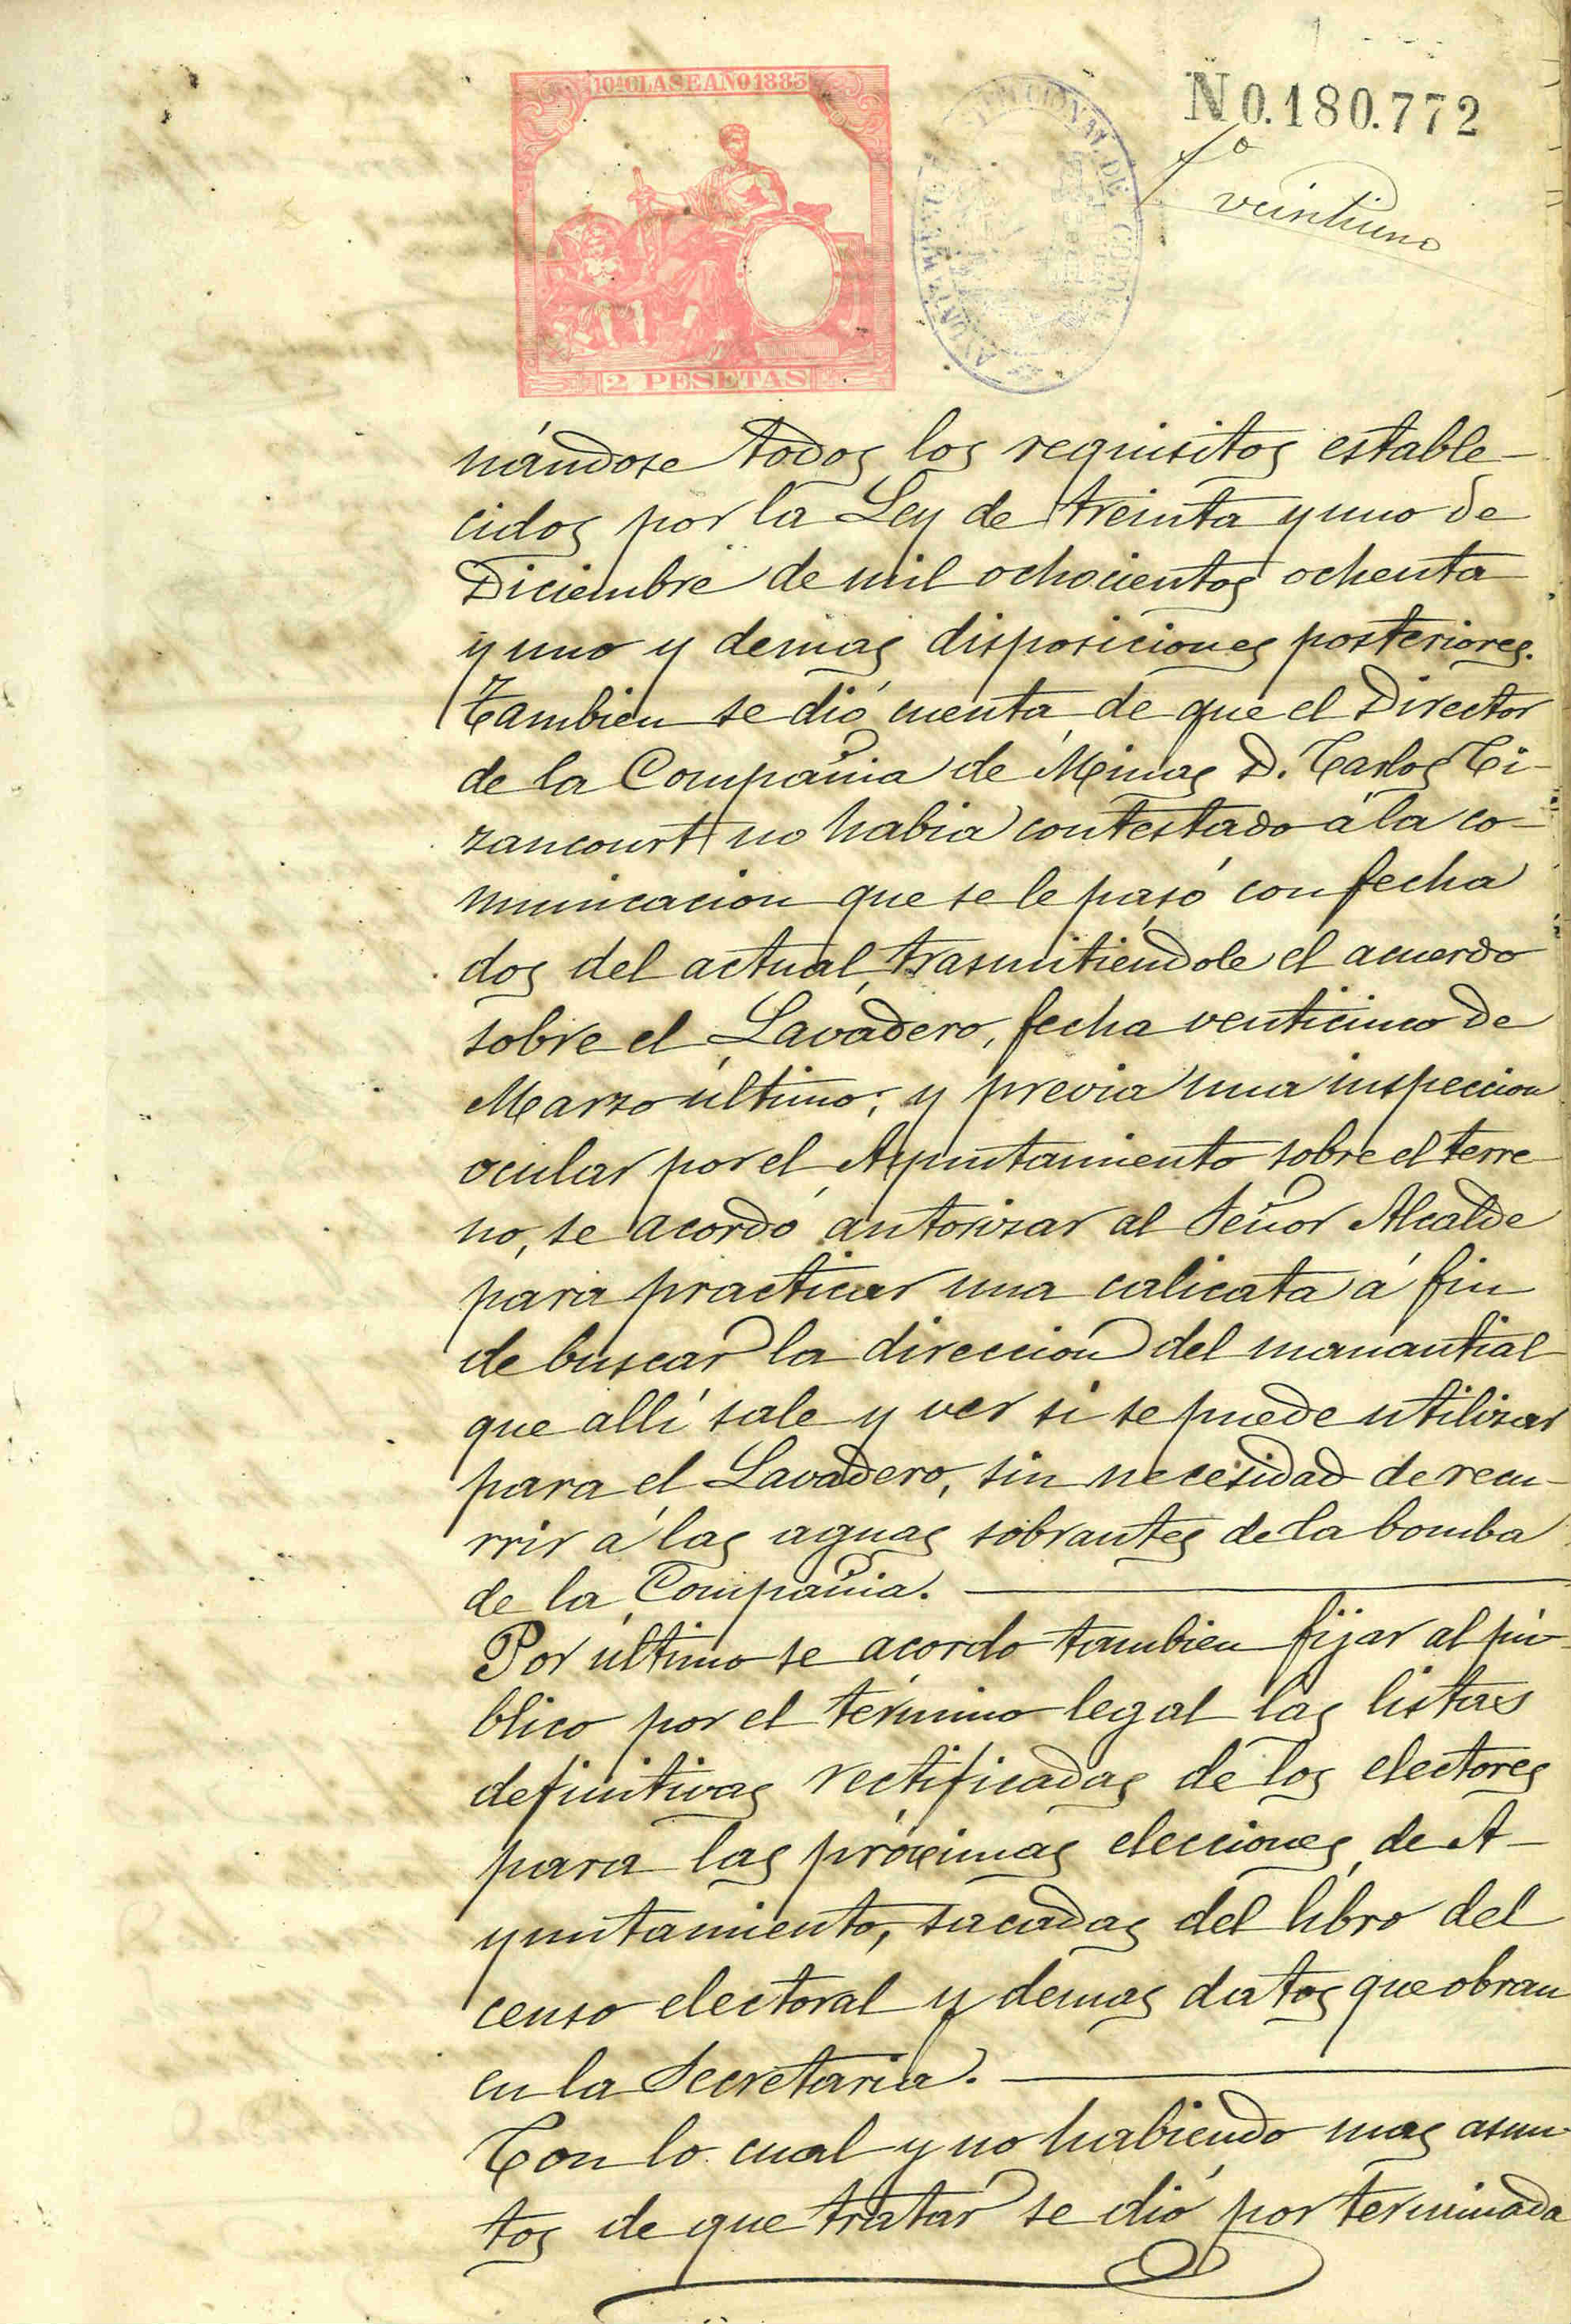 10ª CLASE AÑO 1883
2 PESETAS
N 0.180.772
fº
veintiuno
nándose todos los requisitos estable-
cidos por la Ley de treinta y uno de
Diciembre de mil ochocientos ochenta
y uno y demas disposiciones posteriores.
Tambien se dió cuenta de que el Director
de la Compañia de Minas D. Carlos Li-
zancourt no habia contestado á la co-
municacion que se le pasó con fecha
dos del actual, trasmitiéndole el acuerdo
sobre el Lavadero, fecha venticinco de
Marzo último; y previa una inspeccion
ocular por el Ayuntamiento sobre el terre
no, se acordó autorizar al Señor Alcalde
para practicar una calicata á fin
de buscar la direccion del manantial
que allí sale y ver si se puede utilizar
para el Lavadero, sin necesidad de recu-
rrir á las aguas sobrantes de la bomba
de la Compañia.
Por último se acordo tambien fijar al pú-
blico por el término legal las listas
definitivas rectificadas de los electores
para las próximas elecciones de A-
yuntamiento, sacadas del libro del
censo electoral y demas datos que obran
en la Secretaria.
Con lo cual y no habiendo mas asun-
tos de que tratar se dió por terminada